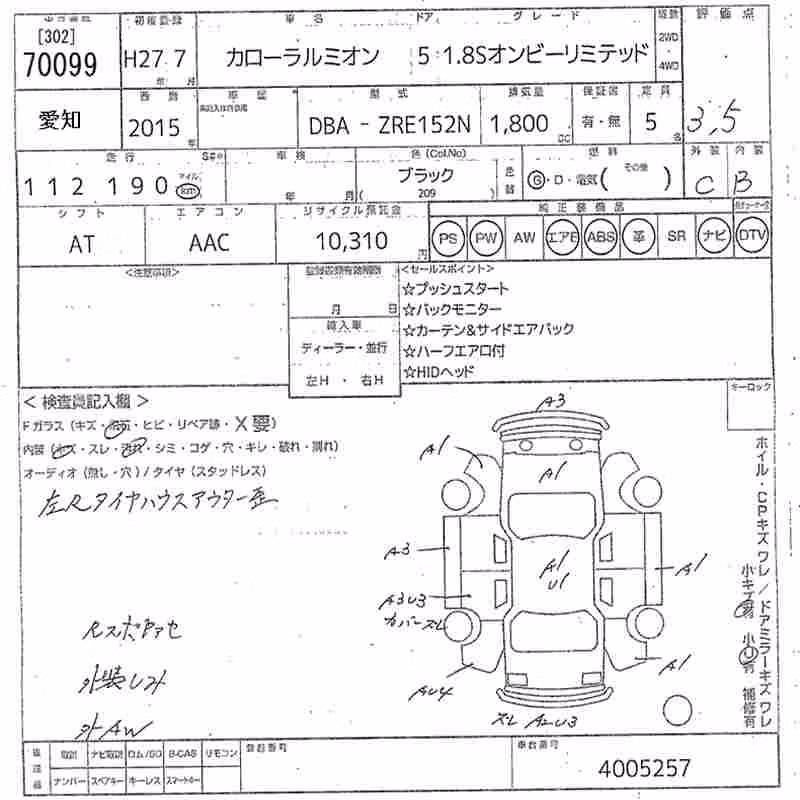 [302] 初度登録 車名 ドア グレード 評価点
70099 H27.7 カローラルミオン 5 1.8Sオンビーリミテッド 2WD・4WD
年 月
愛知 西暦 車歴 型式 排気量 保証書 定員
2015年 DBA - ZRE152N 1,800 CC 有・無 5名 3.5
走行 車検 色(Col.No) 燃料 外装 内装
112 190 マイル km 年 月 ブラック 209 G・D・電気(その他) C B
シフト エアコン リサイクル預託金 純正装備品
AT AAC 10,310円 PS PW AW エアB ABS 革 SR ナビ DTV
<注意事項> <セールスポイント>
☆プッシュスタート
月 日 ☆バックモニター
輸入車 ☆カーテン&サイドエアバック
ディーラー・並行 ☆ハーフエアロ付
左H・右H ☆HIDヘッド
<検査員記入欄> キーロック
Fガラス(キズ・・ヒビ・リペア跡・X要)
内装(キズ・スレ・汚れ・シミ・コゲ・穴・キレ・破れ・割れ)
オーディオ(無し・穴)/タイヤ(スタッドレス)
左Rタイヤハウスアウター歪
A3
A1 A1
A3 A1 U1 A1
A3U3
カバースレ
AU4 A1
スレ A2U3
外装レスト
外AW
ホイル・CPキズワレ/ドアミラーキズワレ
小キズ有 小U有 補修有
取説 ナビ取説 ロム/SD B-CAS リモコン 登録番号 車台番号
ナンバー スペアキー キーレス スマートキー 4005257